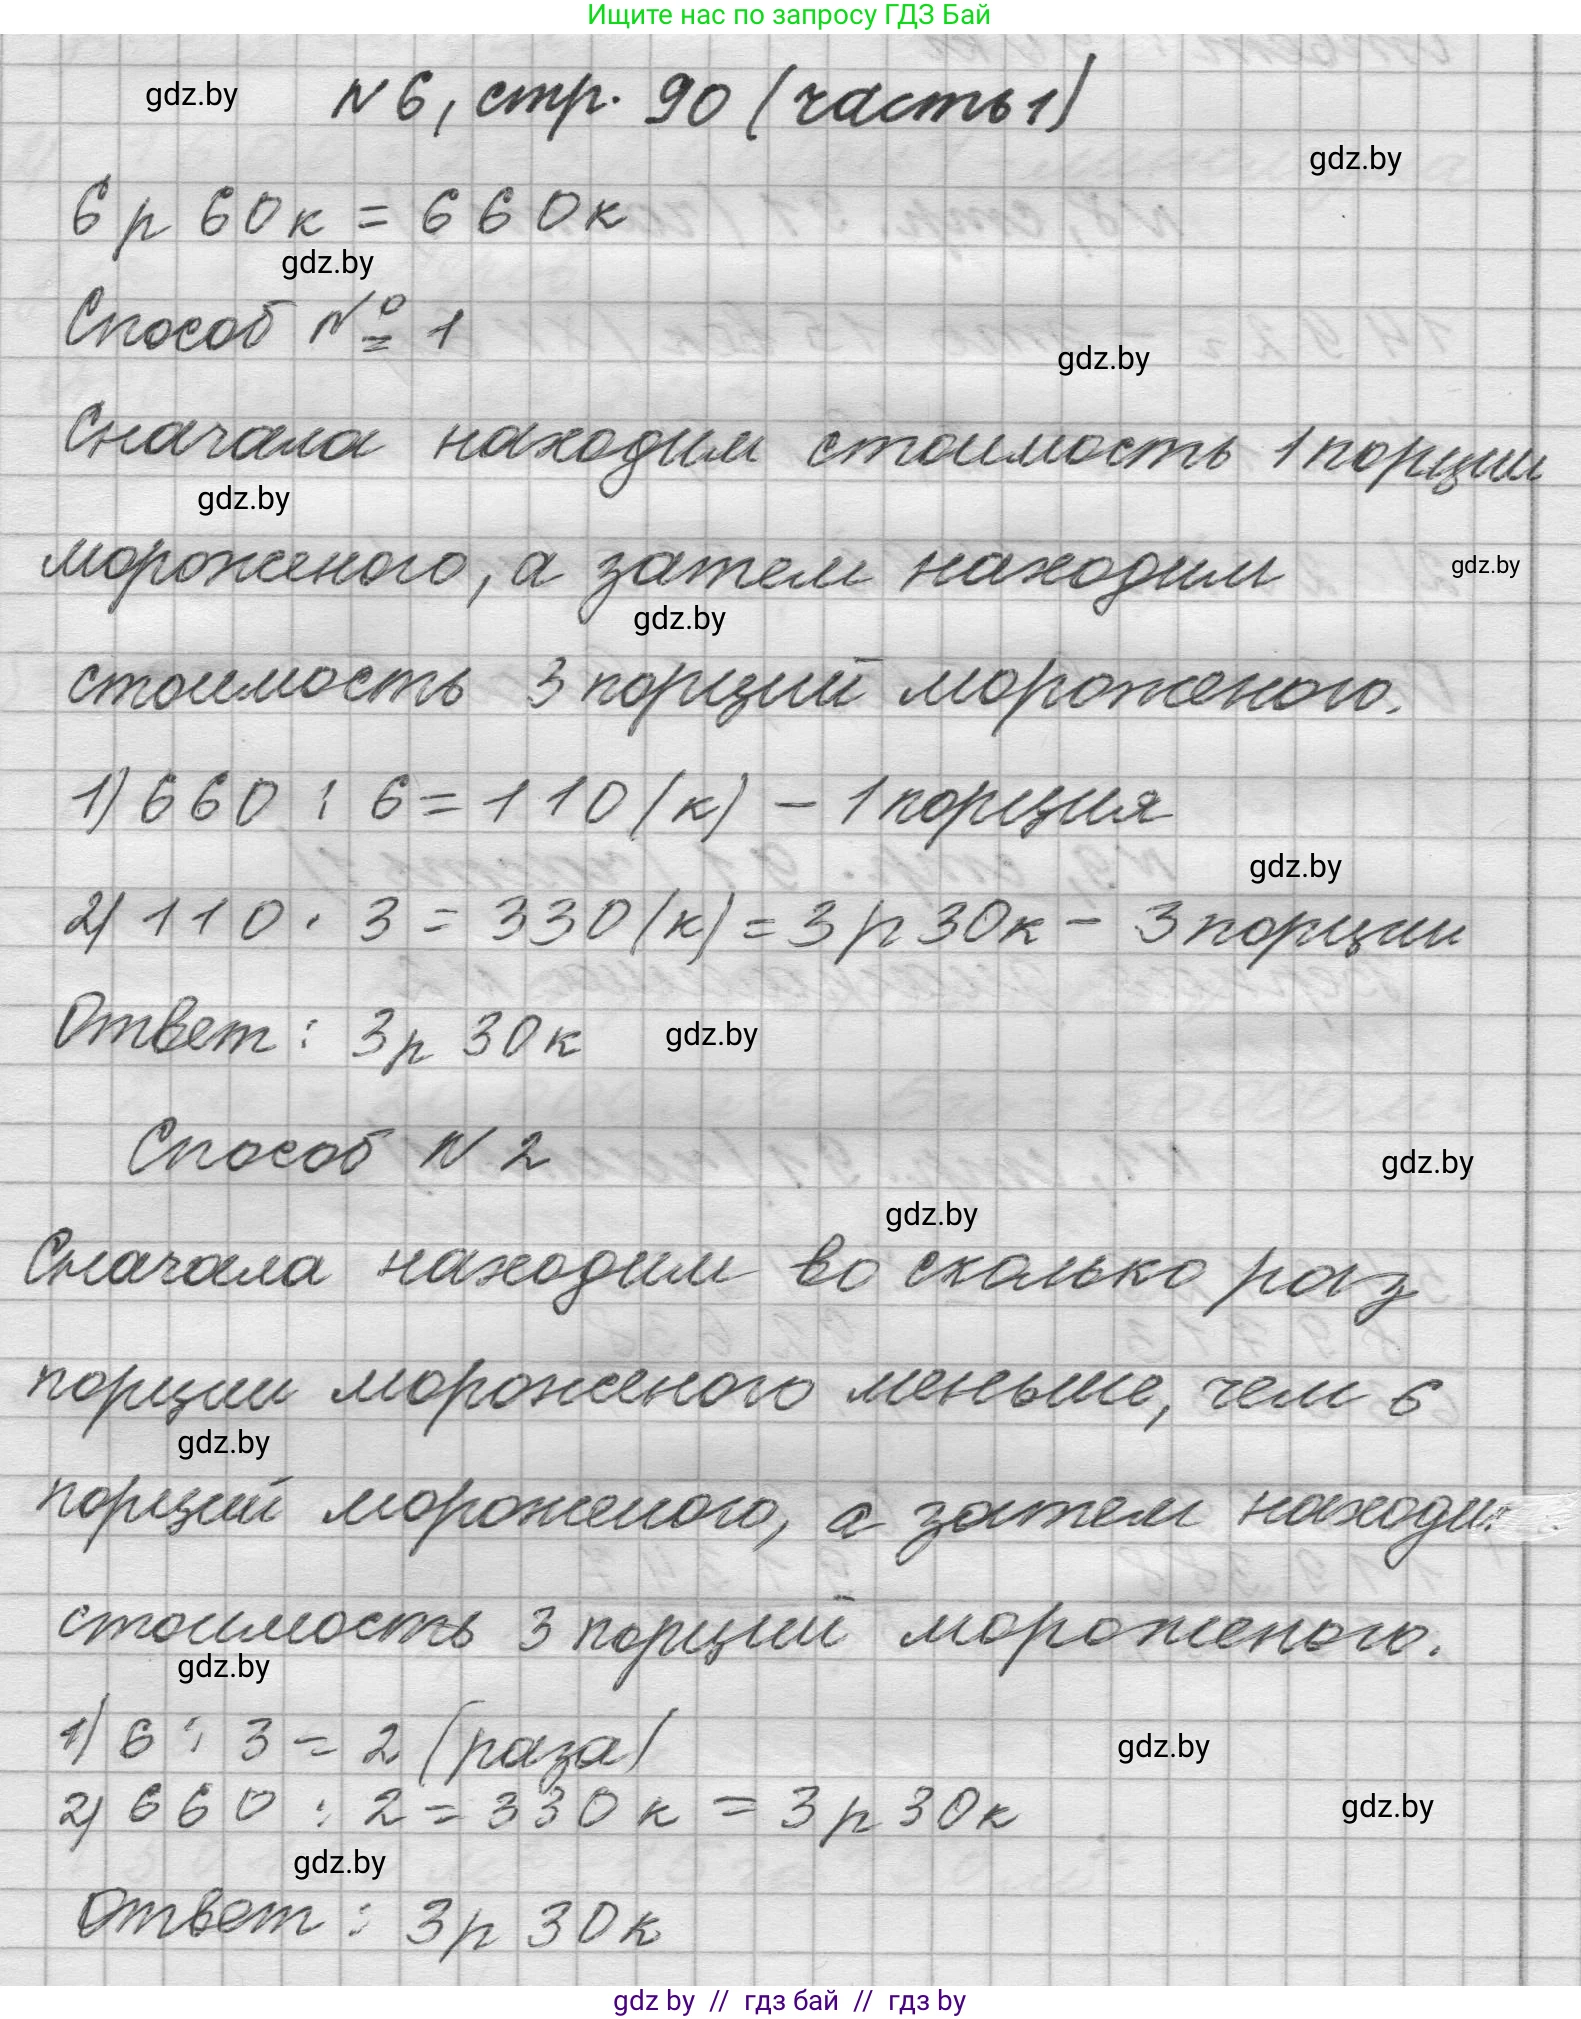 Ищите нас по запросу ГДЗ Бай
gdz.by
N 6, стр. 90 (часть 1)
gdz.by
6 р 60 к = 660 к
gdz.by
Способ № 1
gdz.by
Сначала находим стоимость 1 порции
gdz.by
мороженого, а затем находим
gdz.by
gdz.by
стоимость 3 порций мороженого.
1) 660 : 6 = 110 (к) – 1 порция
gdz.by
2) 110 · 3 = 330 (к) = 3 р 30 к – 3 порции
Ответ: 3 р 30 к
gdz.by
Способ N 2
gdz.by
gdz.by
Сначала находим во сколько раз
порции мороженого меньше, чем 6
gdz.by
порций мороженого, а затем находи
стоимость 3 порций мороженого.
gdz.by
1) 6 : 3 = 2 (раза)
gdz.by
2) 660 : 2 = 330 к = 3 р 30 к
gdz.by
gdz.by
Ответ: 3 р 30 к
gdz by // гдз бай // гдз by